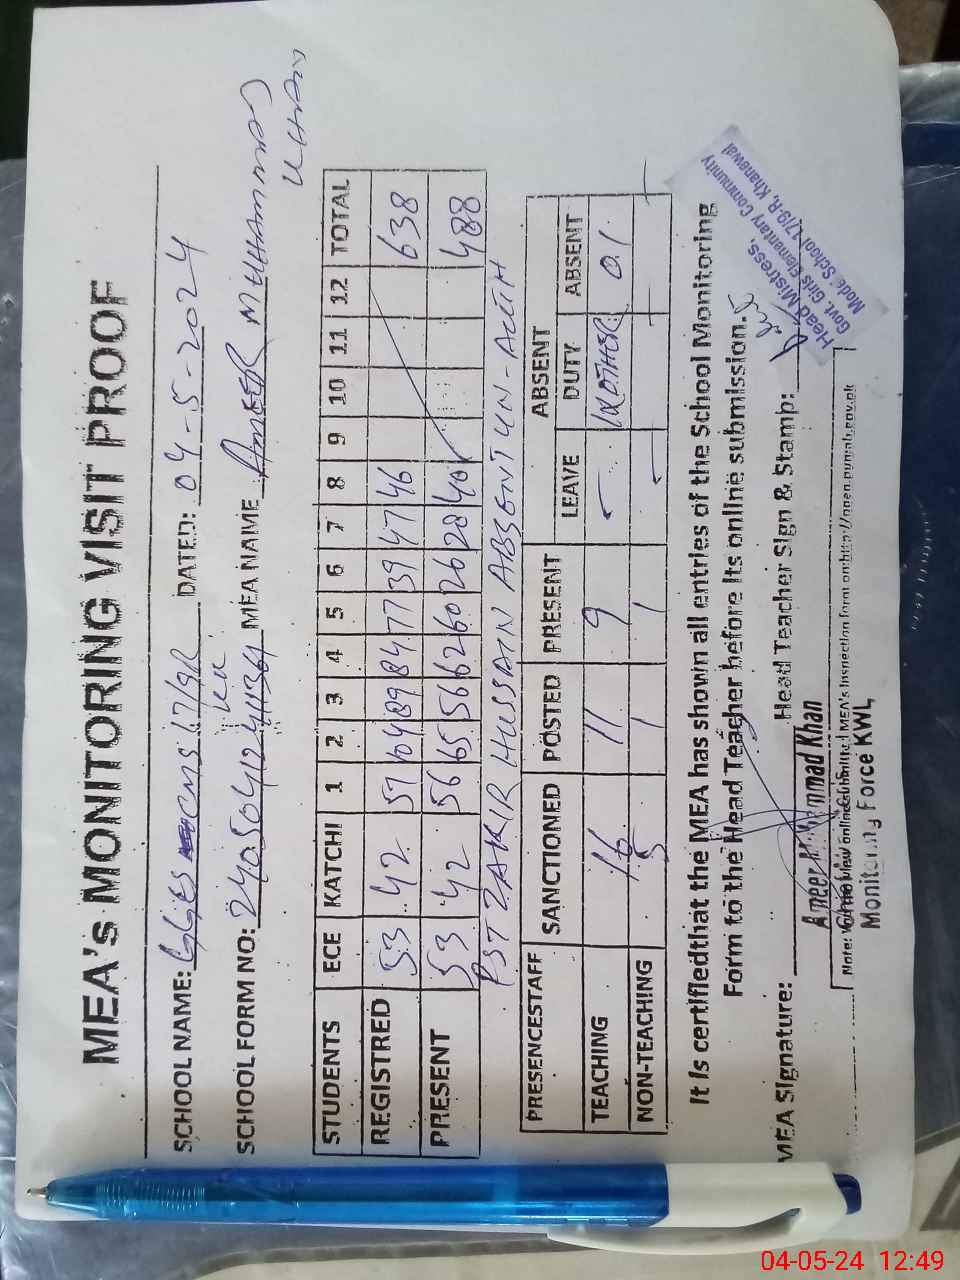 MEA's MONITORING VISIT PROOF
SCHOOL NAME: GGES CMS 17/9R DATED: 04-5-2024
SCHOOL FORM NO: MEA NAME AMEER MUHAMMAD
KHAN
STUDENTS ECE KATCHI 1 2 3 4 5 6 7 8 9 10 11 12 TOTAL
REGISTRED 53 42 57 104 89 84 77 39 47 46 638
PRESENT 53 42 56 65 56 62 60 26 28 40 488
PST ZAKIR HUSSAIN ABSENT UN-AUTH
PRESENCESTAFF SANCTIONED POSTED PRESENT ABSENT
LEAVE DUTY ABSENT
TEACHING 16 11 9 1 01
NON-TEACHING 5 1 1
It is certifiedthat the MEA has shown all entries of the School Monitoring
Form to the Head Teacher before its online submission.
MEA Signature: Head Teacher Sign & Stamp:
Ameer Muhammad Khan
Monitoring Force KWL
Head Mistress,
Govt. Girls Elementary Community
Mode School 17/9-R, Khanewal
Note: view online submitted MEA's inspection form on http://open.punjab.gov.pk
04-05-24 12:49